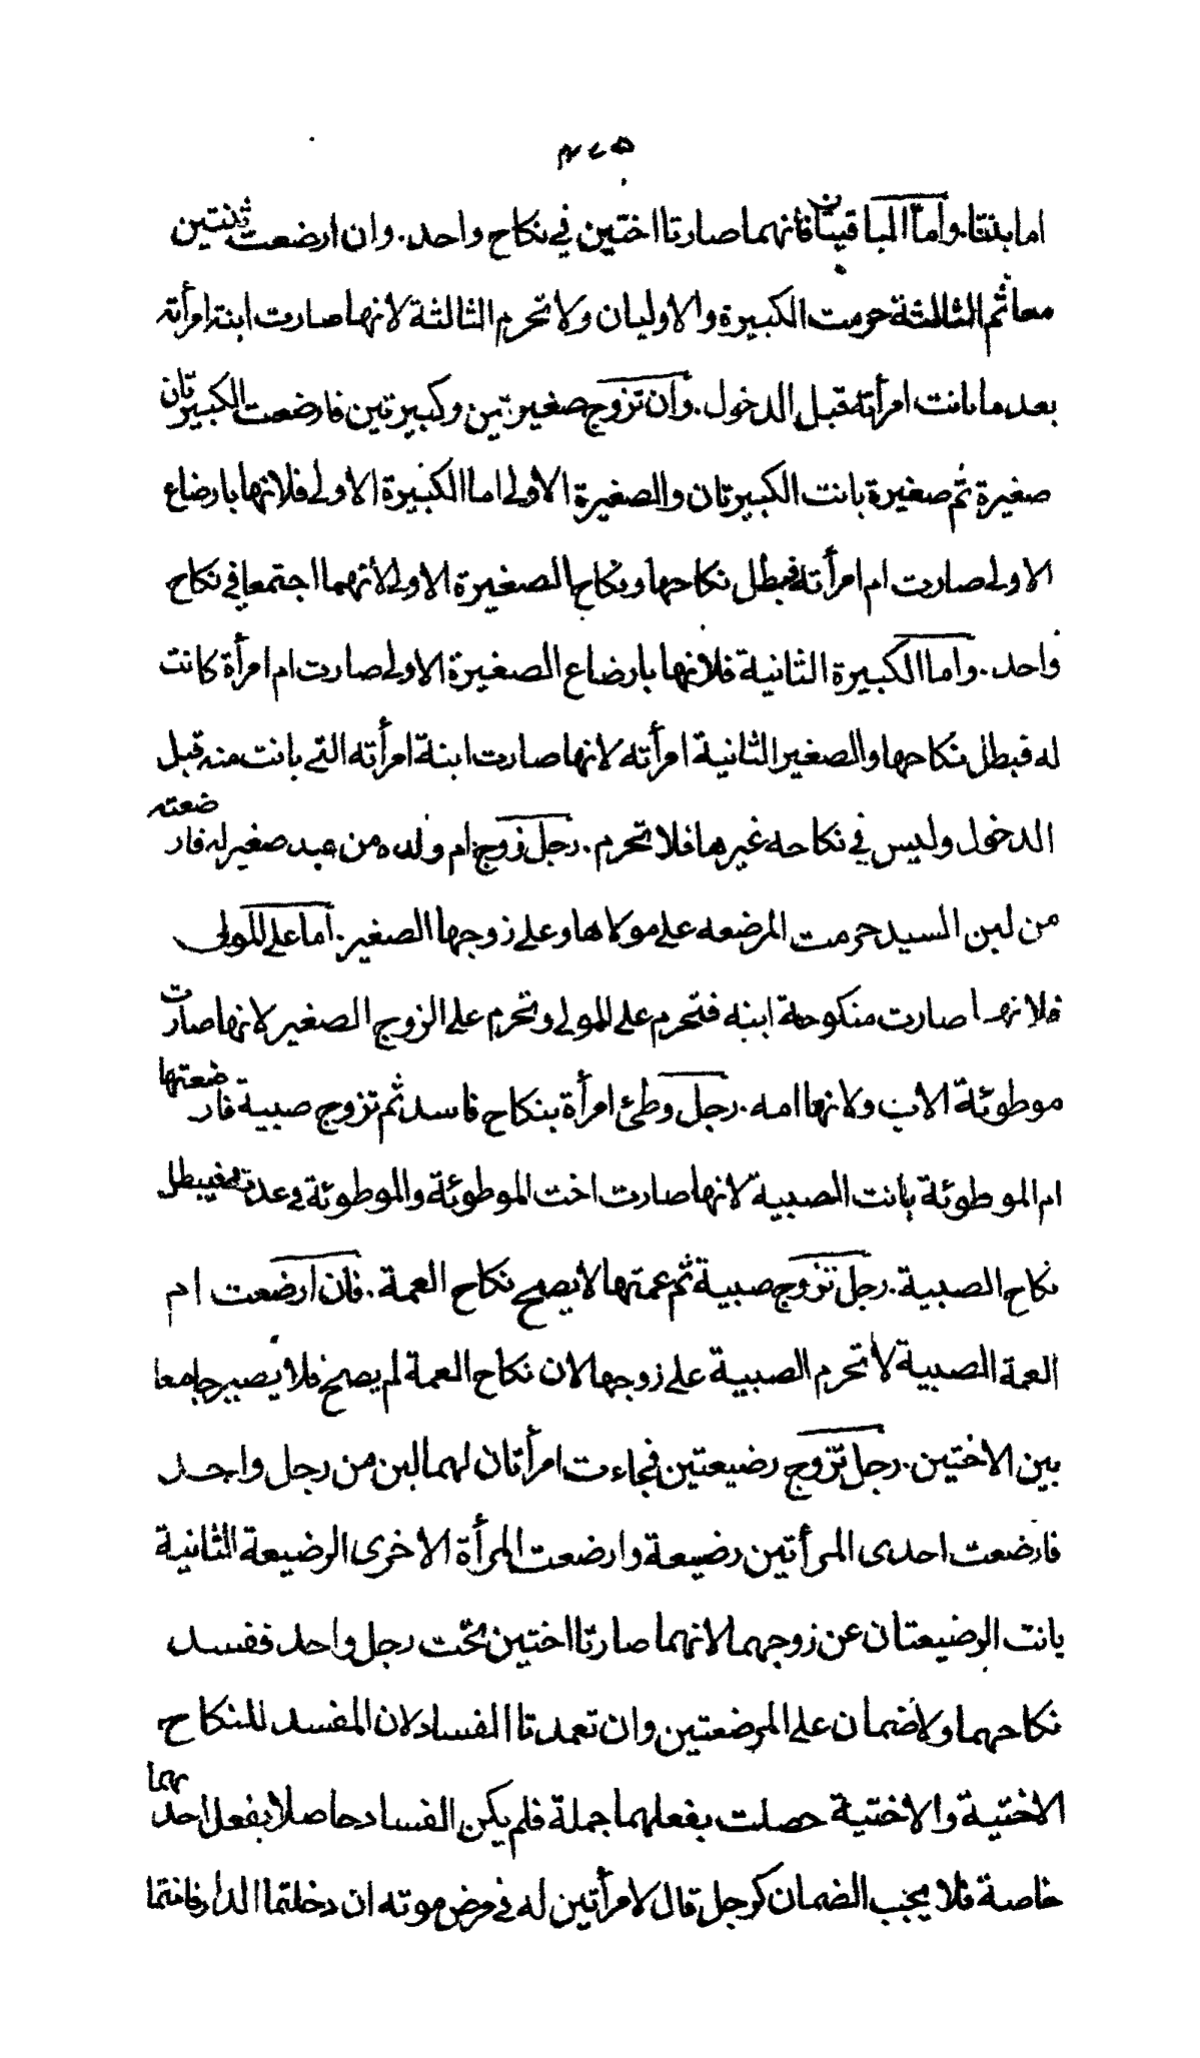 ٣٧٥
اما بنتا. واما الباقيتان فأنهما صارتا اختين في نكاح واحد. وان ارضعت ثنتين
معا ثم الثالثة حرمت الكبيرة والاوليان ولا تحرم الثالثة لانها صارت ابنة امرأته
بعد ما بانت امرأته قبل الدخول. وان تزوج صغيرتين وكبيرتين فارضعت الكبيرتان
صغيرة ثم صغيرة بانت الكبيرتان والصغيرة الأولى اما الكبيرة الاولى فلانها بارضاع
الاولى صارت ام امرأته فبطل نكاحها ونكاح الصغيرة الاولى لأنهما اجتمعا في نكاح
واحد. واما الكبيرة الثانية فلانها بارضاع الصغيرة الاولى صارت ام امرأة كانت
له فبطل نكاحها والصغير الثانية امرأته لانها صارت ابنة امرأته التى بانت منه قبل
الدخول وليس في نكاحه غيرها فلا تحرم. رجل زوج ام ولده من عبد صغير له فارضعته
من لبن السيد حرمت المرضعه على مولاها وعلى زوجها الصغير. اما على المولى
فلانها صارت منكوحة ابنه فتحرم على المولى وتحرم على الزوج الصغير لانها صارت
موطوئة الاب ولانها امه. رجل وطئ امرأة بنكاح فاسد ثم تزوج صبية فارضعتها
ام الموطوئة بانت الصبية لانها صارت اخت الموطوئة والموطوئة فى عدته فيبطل
نكاح الصبية. رجل تزوج صبية ثم عمتها لا يصح نكاح العمة. فان ارضعت ام
العمة الصبية لا تحرم الصبية على زوجها لان نكاح العمة لم يصح فلا يصير جامعا
بين الاختين. رجل تزوج رضيعتين فجاءت امرأتان لهما لبن من رجل واحد
فارضعت احدى المرأتين رضيعة وارضعت المرأة الاخرى الرضيعة الثانية
بانت الرضيعتان عن زوجهما لانهما صارتا اختين تحت رجل واحد ففسد
نكاحهما ولا ضمان على المرضعتين وان تعمدتا الفساد لان المفسد للنكاح
الاختية والاختية حصلت بفعلهما جملة فلم يكن الفساد حاصلا بفعل احدهما
خاصة فلا يجب الضمان كرجل قال لامرأتين له في مرض موته ان دخلتما الدار فانتما